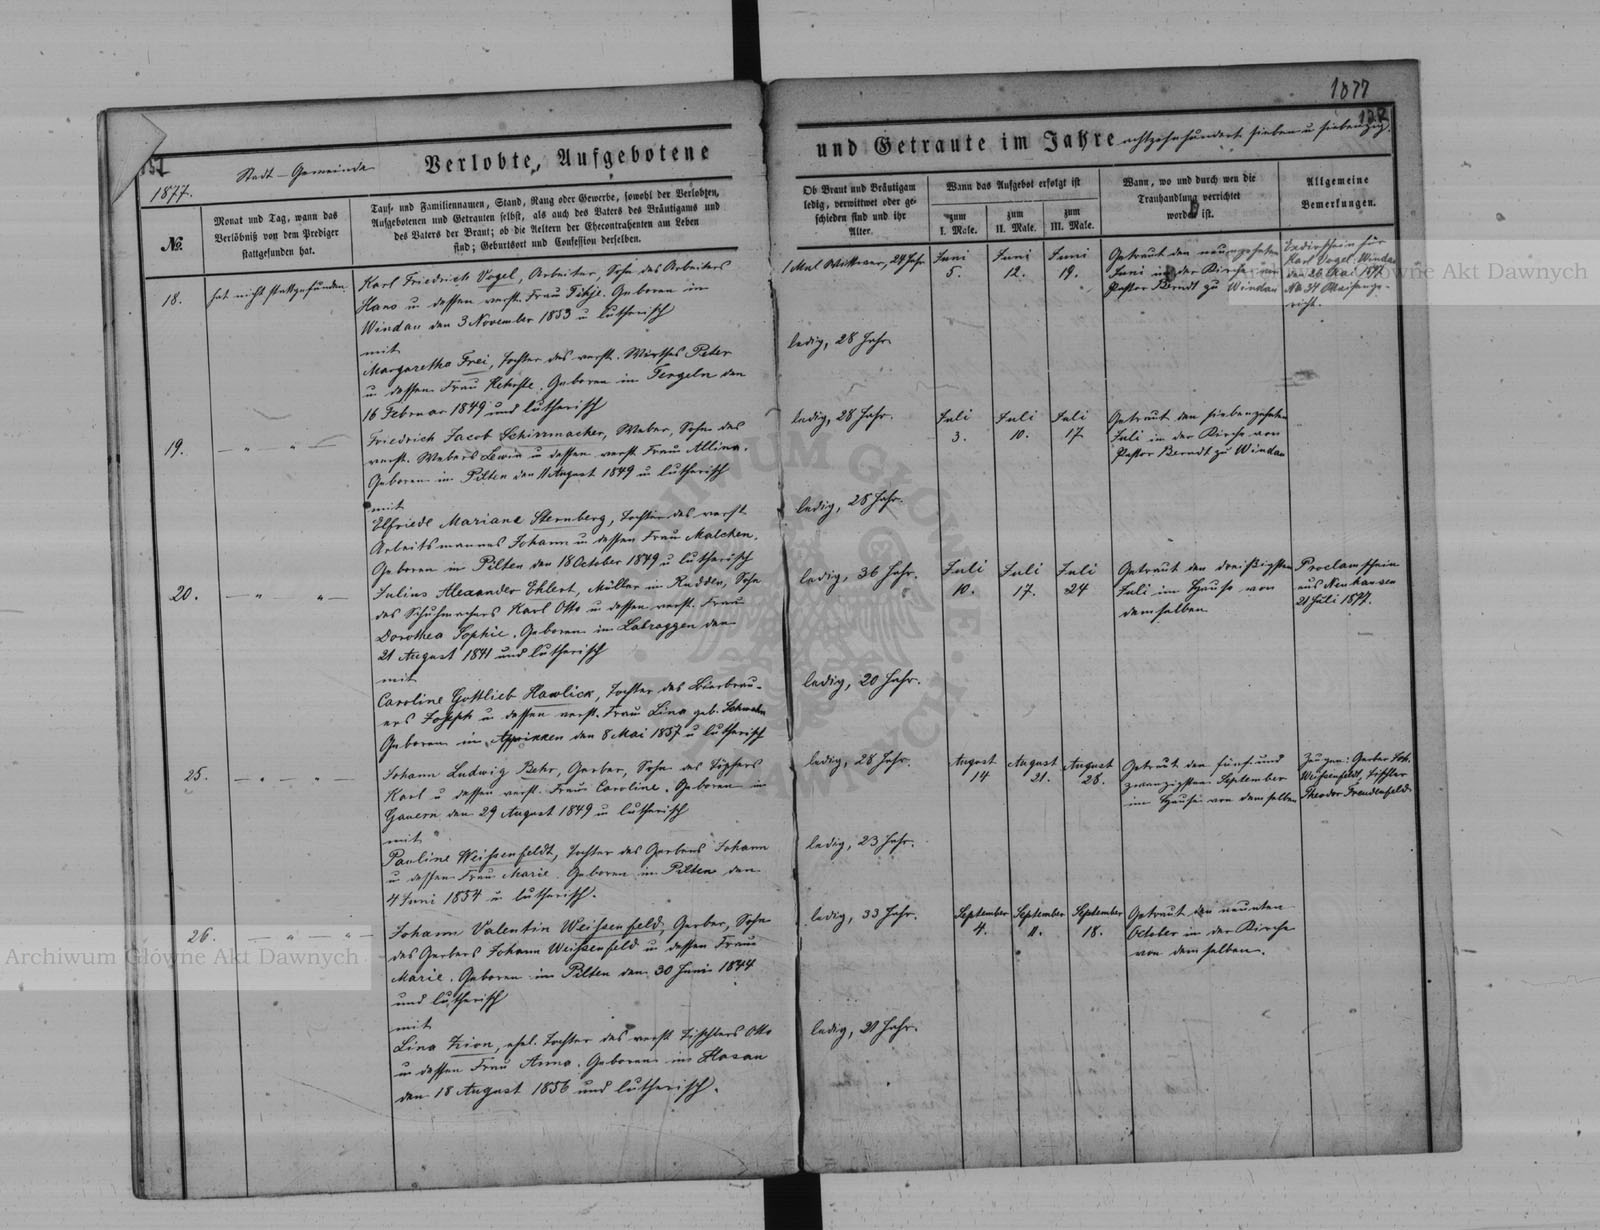 1877
151
1877.
Stadt-Gemeinde
Verlobte, Aufgebotene
No.
Monat und Tag, wann das
Verlöbniß von dem Prediger
stattgefunden hat.
Tauf- und Familiennamen, Stand, Rang oder Gewerbe, sowohl der Verlobten,
Aufgebotenen und Getrauten selbst, als auch des Vaters des Bräutigams und
des Vaters der Braut; ob die Aeltern der Ehecontrahenten am Leben
sind; Geburtsort und Confession derselben.
18.
hat nicht stattgefunden.
Karl Friedrich Vogel, Arbeiter, Sohn des Arbeiters
Hans u dessen verst. Frau Geboren in
Windau den 3 November 1853 u lutherisch
mit
Margaretha Frei, Tochter des verst. Wirthes Peter
u dessen Frau Geboren in Tergeln den
16 Februar 1849 und lutherisch
19.
— „ — „ —
Friedrich Jacob Schirrmacher, Weber, Sohn des
verst. Webers Lewin u dessen verst Frau Albina.
Geboren in Pilten den 11 August 1849 u lutherisch
mit
Elfriede Mariane Sternberg, Tochter des verst
Arbeitsmannes Johann u dessen Frau Malchen.
Geboren in Pilten den 18 October 1849 u lutherisch
20.
— „ — „ —
Julius Alexander Ehlert, Müller in Rudden, Sohn
des Schuhmachers Karl Otto u dessen verst. Frau
Dorothea Sophie. Geboren in Labraggen den
21 August 1841 und lutherisch
mit
Caroline Gottlieb Hawlick, Tochter des Bierbrau-
ers Joseph u dessen verst. Frau Lina geb.
Geboren in Appricken den 8 Mai 1857 u lutherisch
25.
— „ — „ —
Johann Ludwig Behr, Gerber, Sohn des Töpfers
Karl u dessen verst. Frau Caroline. Geboren in
Gauern den 29 August 1849 u lutherisch
mit
Pauline Weissenfeldt, Tochter des Gerbers Johann
u dessen Frau Marie. Geboren in Pilten den
4 Juni 1854 u lutherisch.
26.
— „ — „ —
Johann Valentin Weissenfeld, Gerber, Sohn
des Gerbers Johann Weissenfeld u dessen Frau
Marie. Geboren in Pilten den 30 Juni 1844
und lutherisch
mit
Lina Zion, ehel. Tochter des verst Tischlers Otto
u dessen Frau Anna. Geboren in Hasau
den 18 August 1856 und lutherisch.
und Getraute im Jahre achtzehnhundert sieben u siebenzig.
Ob Braut und Bräutigam
ledig, verwittwet oder ge-
schieden sind und ihr
Alter.
Wann das Aufgebot erfolgt ist
zum
I. Male.
zum
II. Male.
zum
III. Male.
Wann, wo und durch wen die
Trauhandlung verrichtet
worden ist.
Allgemeine
Bemerkungen.
1 Mal Wittwer, 24 Jahr
Juni
5.
Juni
12.
Juni
19.
Getraut den neunzehnten
Juni in der Kirche von
Pastor Berndt zu Windau
Karl Vogel. Windau
den 26 Mai 1877
No 34 Waisenge-
richt.
ledig, 28 Jahr.
ledig, 28 Jahr.
Juli
3.
Juli
10.
Juli
17
Getraut den siebenzehnten
Juli in der Kirche von
Pastor Berndt zu Windau
ledig, 28 Jahr.
ledig, 36 Jahr.
Juli
10.
Juli
17.
Juli
24
Getraut den dreißigsten
Juli im Hause von
demselben
Proclamschein
aus Neuhausen
21 Juli 1877.
ledig, 20 Jahr.
ledig, 28 Jahr.
August
14
August
21.
August
28.
Getraut den fünf und
zwanzigsten September
im Hause von demselben
Zeugen: Gerber Joh.
Weissenfeldt, Tischler
Theodor Freudenfeld.
ledig, 23 Jahr.
ledig, 33 Jahr.
September
4.
September
11.
September
18.
Getraut den neunten
October in der Kirche
von demselben.
ledig, 21 Jahr.
Archiwum Główne Akt Dawnych
Archiwum Główne Akt Dawnych
ARCHIWUM GŁÓWNE AKT DAWNYCH